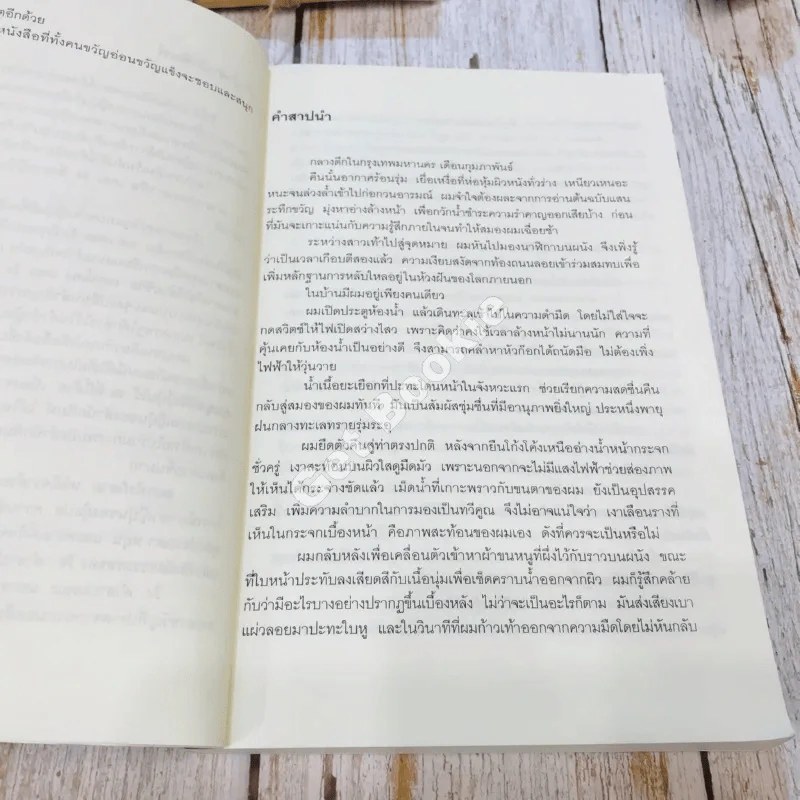 อีกด้วย
หนังสือที่ทั้งคนขวัญอ่อนขวัญแข็งจะชอบและสนุก
คำสาปนำ
กลางดึกในกรุงเทพมหานคร เดือนกุมภาพันธ์
คืนนั้นอากาศร้อนรุ่ม เยื่อเหงื่อที่ห่อหุ้มผิวหนังทั่วร่าง เหนียวเหนอะ
หนะจนล่วงล้ำเข้าไปก่อกวนอารมณ์ ผมจำใจต้องผละจากการอ่านต้นฉบับแสน
ระทึกขวัญ มุ่งหาอ่างล้างหน้า เพื่อกวักน้ำชำระความรำคาญออกเสียบ้าง ก่อน
ที่มันจะเกาะแน่นกับความรู้สึกภายในจนทำให้สมองผมเฉื่อยช้า
ระหว่างสาวเท้าไปสู่จุดหมาย ผมหันไปมองนาฬิกาบนผนัง จึงเพิ่งรู้
ว่าเป็นเวลาเกือบตีสองแล้ว ความเงียบสงัดจากท้องถนนลอยเข้าร่วมสมทบเพื่อ
เพิ่มหลักฐานการหลับใหลอยู่ในห้วงฝันของโลกภายนอก
ในบ้านมีผมอยู่เพียงคนเดียว
ผมเปิดประตูห้องน้ำ แล้วเดินทะลุเข้าไปในความดำมืด โดยไม่ใส่ใจจะ
กดสวิตซ์ให้ไฟเปิดสว่างไสว เพราะคิดว่าคงใช้เวลาล้างหน้าไม่นานนัก ความที่
คุ้นเคยกับห้องน้ำเป็นอย่างดี จึงสามารถคลำหาหัวก๊อกได้ถนัดมือ ไม่ต้องพึ่ง
ไฟฟ้าให้วุ่นวาย
น้ำเนื้อยะเยือกที่ปะทะโดนหน้าในจังหวะแรก ช่วยเรียกความสดชื่นคืน
กลับสู่สมองของผมทันที มันเป็นสัมผัสชุ่มชื่นที่มีอานุภาพยิ่งใหญ่ ประหนึ่งพายุ
ฝนกลางทะเลทรายรุ่มระอุ
ผมยืดตัวคืนสู่ท่าตรงปกติ หลังจากยืนโก้งโค้งเหนืออ่างน้ำหน้ากระจก
ชั่วครู่ เงาสะท้อนบนผิวใสดูมืดมัว เพราะนอกจากจะไม่มีแสงไฟฟ้าช่วยส่องภาพ
ให้เห็นได้กระจ่างชัดแล้ว เม็ดน้ำที่เกาะพราวกับขนตาของผม ยังเป็นอุปสรรค
เสริม เพิ่มความลำบากในการมองเป็นทวีคูณ จึงไม่อาจแน่ใจว่า เงาเลือนรางที่
เห็นในกระจกเบื้องหน้า คือภาพสะท้อนของผมเอง ดังที่ควรจะเป็นหรือไม่
ผมกลับหลังเพื่อเคลื่อนตัวเข้าหาผ้าขนหนูที่ผึ่งไว้กับราวบนผนัง ขณะ
ที่ใบหน้าประทับลงเสียดสีกับเนื้อนุ่มเพื่อเช็ดคราบน้ำออกจากผิว ผมก็รู้สึกคล้าย
กับว่ามีอะไรบางอย่างปรากฏขึ้นเบื้องหลัง ไม่ว่าจะเป็นอะไรก็ตาม มันส่งเสียงเบา
แผ่วลอยมาปะทะใบหู และในวินาทีที่ผมก้าวเท้าออกจากความมืดโดยไม่หันกลับ
Get Bookie